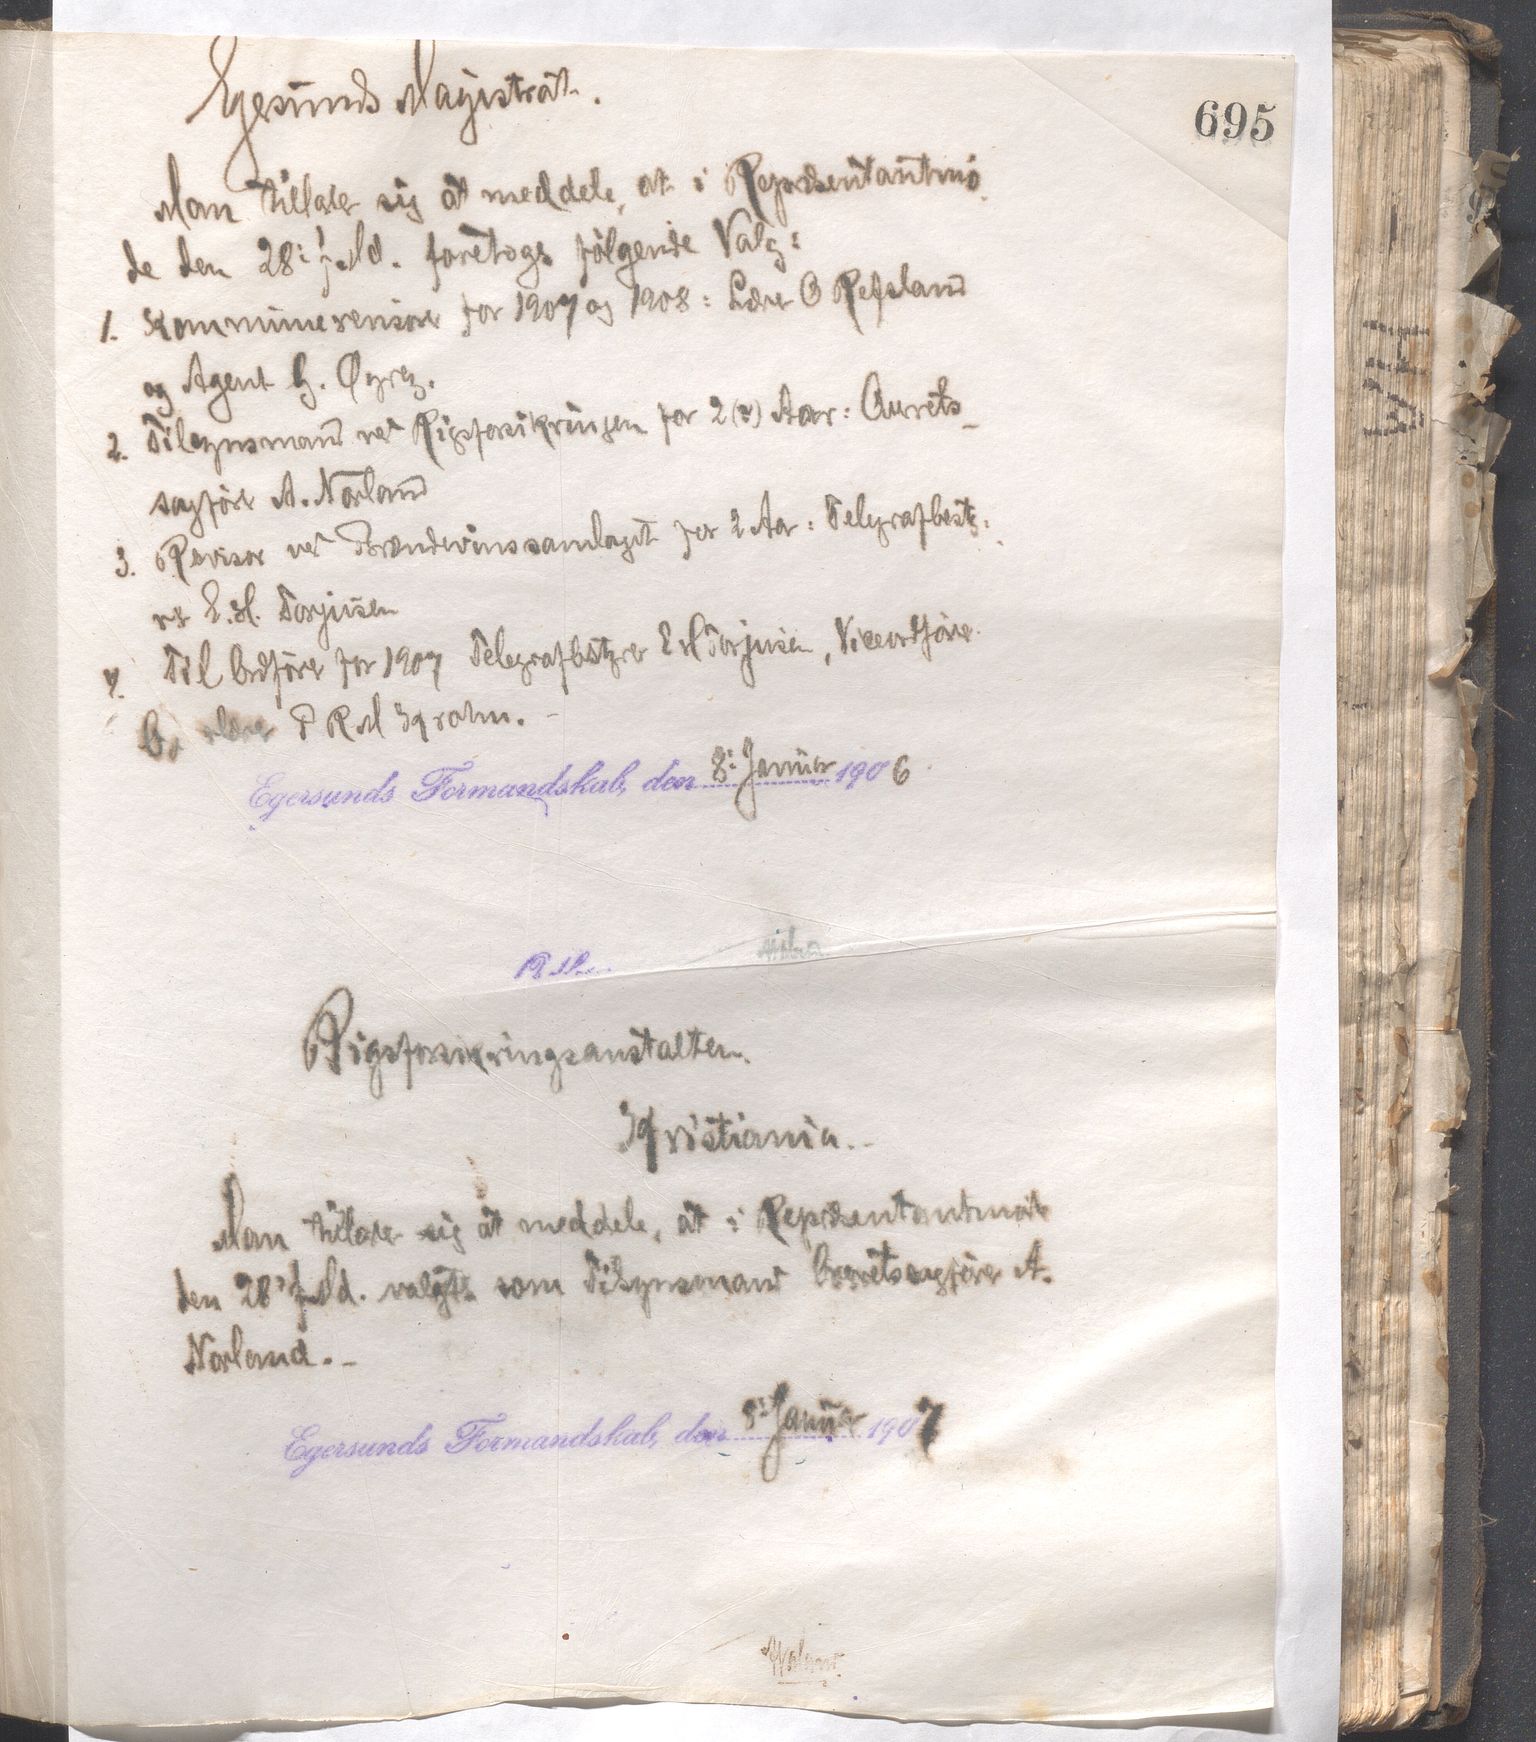 695
Egersunds Magistrat.
Man tillader sig at meddele, at i Repræsentantmö
de den 28: f. Md. foretoges fölgende Valg:
1. Kommunerevisorer for 1907 og 1908: Lærer O Refsland
og Agent G. Øyrg.
2. Tilsynsmand ved Rigsforsikringen for 2 (to) Aar: Overrets-
sagförer A. Norland
3. Revisor ved Brændevinssamlaget for 2 Aar: Telegrafbesty-
rer E. M. Torjusen
4. Til Ordförer for 1907 Telegrafbstyrer E M Torjusen, Viceordförer
P R M Krohn. -
Egersunds Formandskab, den 8: Januar 1906
Rigsforsikringsanstalten.
Kristiania.-
Man tillader sig at meddele, at i Repræsentantmöde
den 28: f. Md. valgtes som Tilsynsmand Overretssagförer A.
Norland.-
Egersunds Formandskab, den 8: Januar 1907